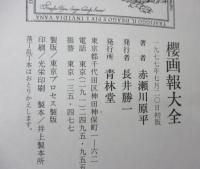 櫻画報大全
一九七七年七月二〇日初版
著者 赤瀬川原平
発行者 長井勝一
発行所 青林堂
東京都千代田区神田神保町一ー六二
電話 東京二九一ー二四九五・九五五
振替 東京一三五ー四七七
製版/東京プロセス製版
印刷/光栄印刷 製本/井上製本所
落丁・乱丁本はおとりかえします。